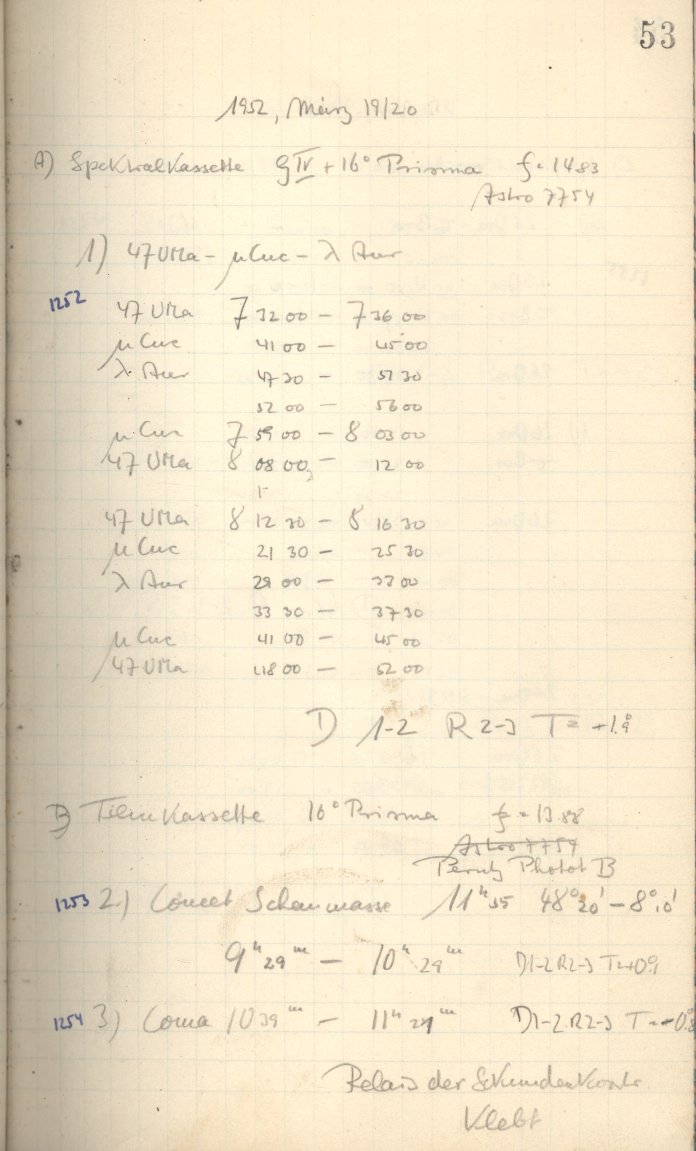 53
1952, März 19/20
A) Spektralkassette gIV + 16° Prisma f = 14 83
Astro 7754
1) 47 UMa – μ Cnc – λ Aur
1252
47 UMa 7 32 00 – 7 36 00
μ Cnc 41 00 – 45 00
λ Aur 47 30 – 51 30
52 00 – 56 00
μ Cnc 7 59 00 – 8 03 00
47 UMa 8 08 00 12 00
47 UMa 8 12 30 – 8 16 30
μ Cnc 21 30 – 25 30
λ Aur 29 00 – 33 00
33 30 – 37 30
μ Cnc 41 00 – 45 00
47 UMa 48 00 – 52 00
D 1-2 R 2-3 T = +1.9°
B) Filmkassette 16° Prisma f = 13 88
Astro 7754
Perutz Photot B
1253 2.) Comet Schaumasse 11ʰ 55 48° 20' – 8° 10'
9ʰ 29ᵐ – 10ʰ 29ᵐ D1-2 R2-3 T=+0.9
1254 3) Coma 10 39ᵐ – 11ʰ 29ᵐ D1-2 R2-3 T=-0.8
Relais der Sekundenkontr.
klebt